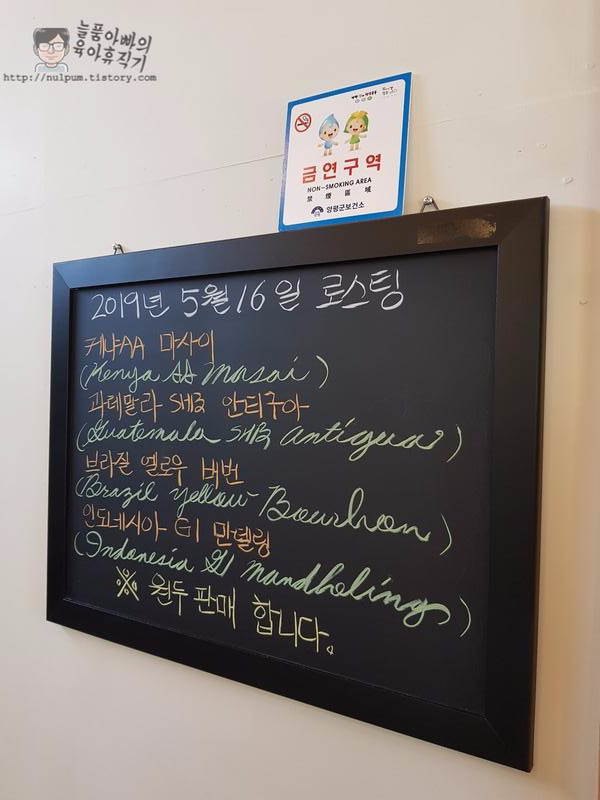 늘품아빠의
육아휴직기
http://nulpum.tistory.com
금연구역
NON-SMOKING AREA
禁煙區域
양평군보건소
2019년 5월 16일 로스팅
케냐AA 마사이
(Kenya AA Masai)
과테말라 SHB 안티구아
(Guatemala SHB Antigua)
브라질 옐로우 버번
(Brazil Yellow Bourbon)
인도네시아 G1 만델링
(Indonesia G1 mandheling)
※ 원두 판매 합니다.